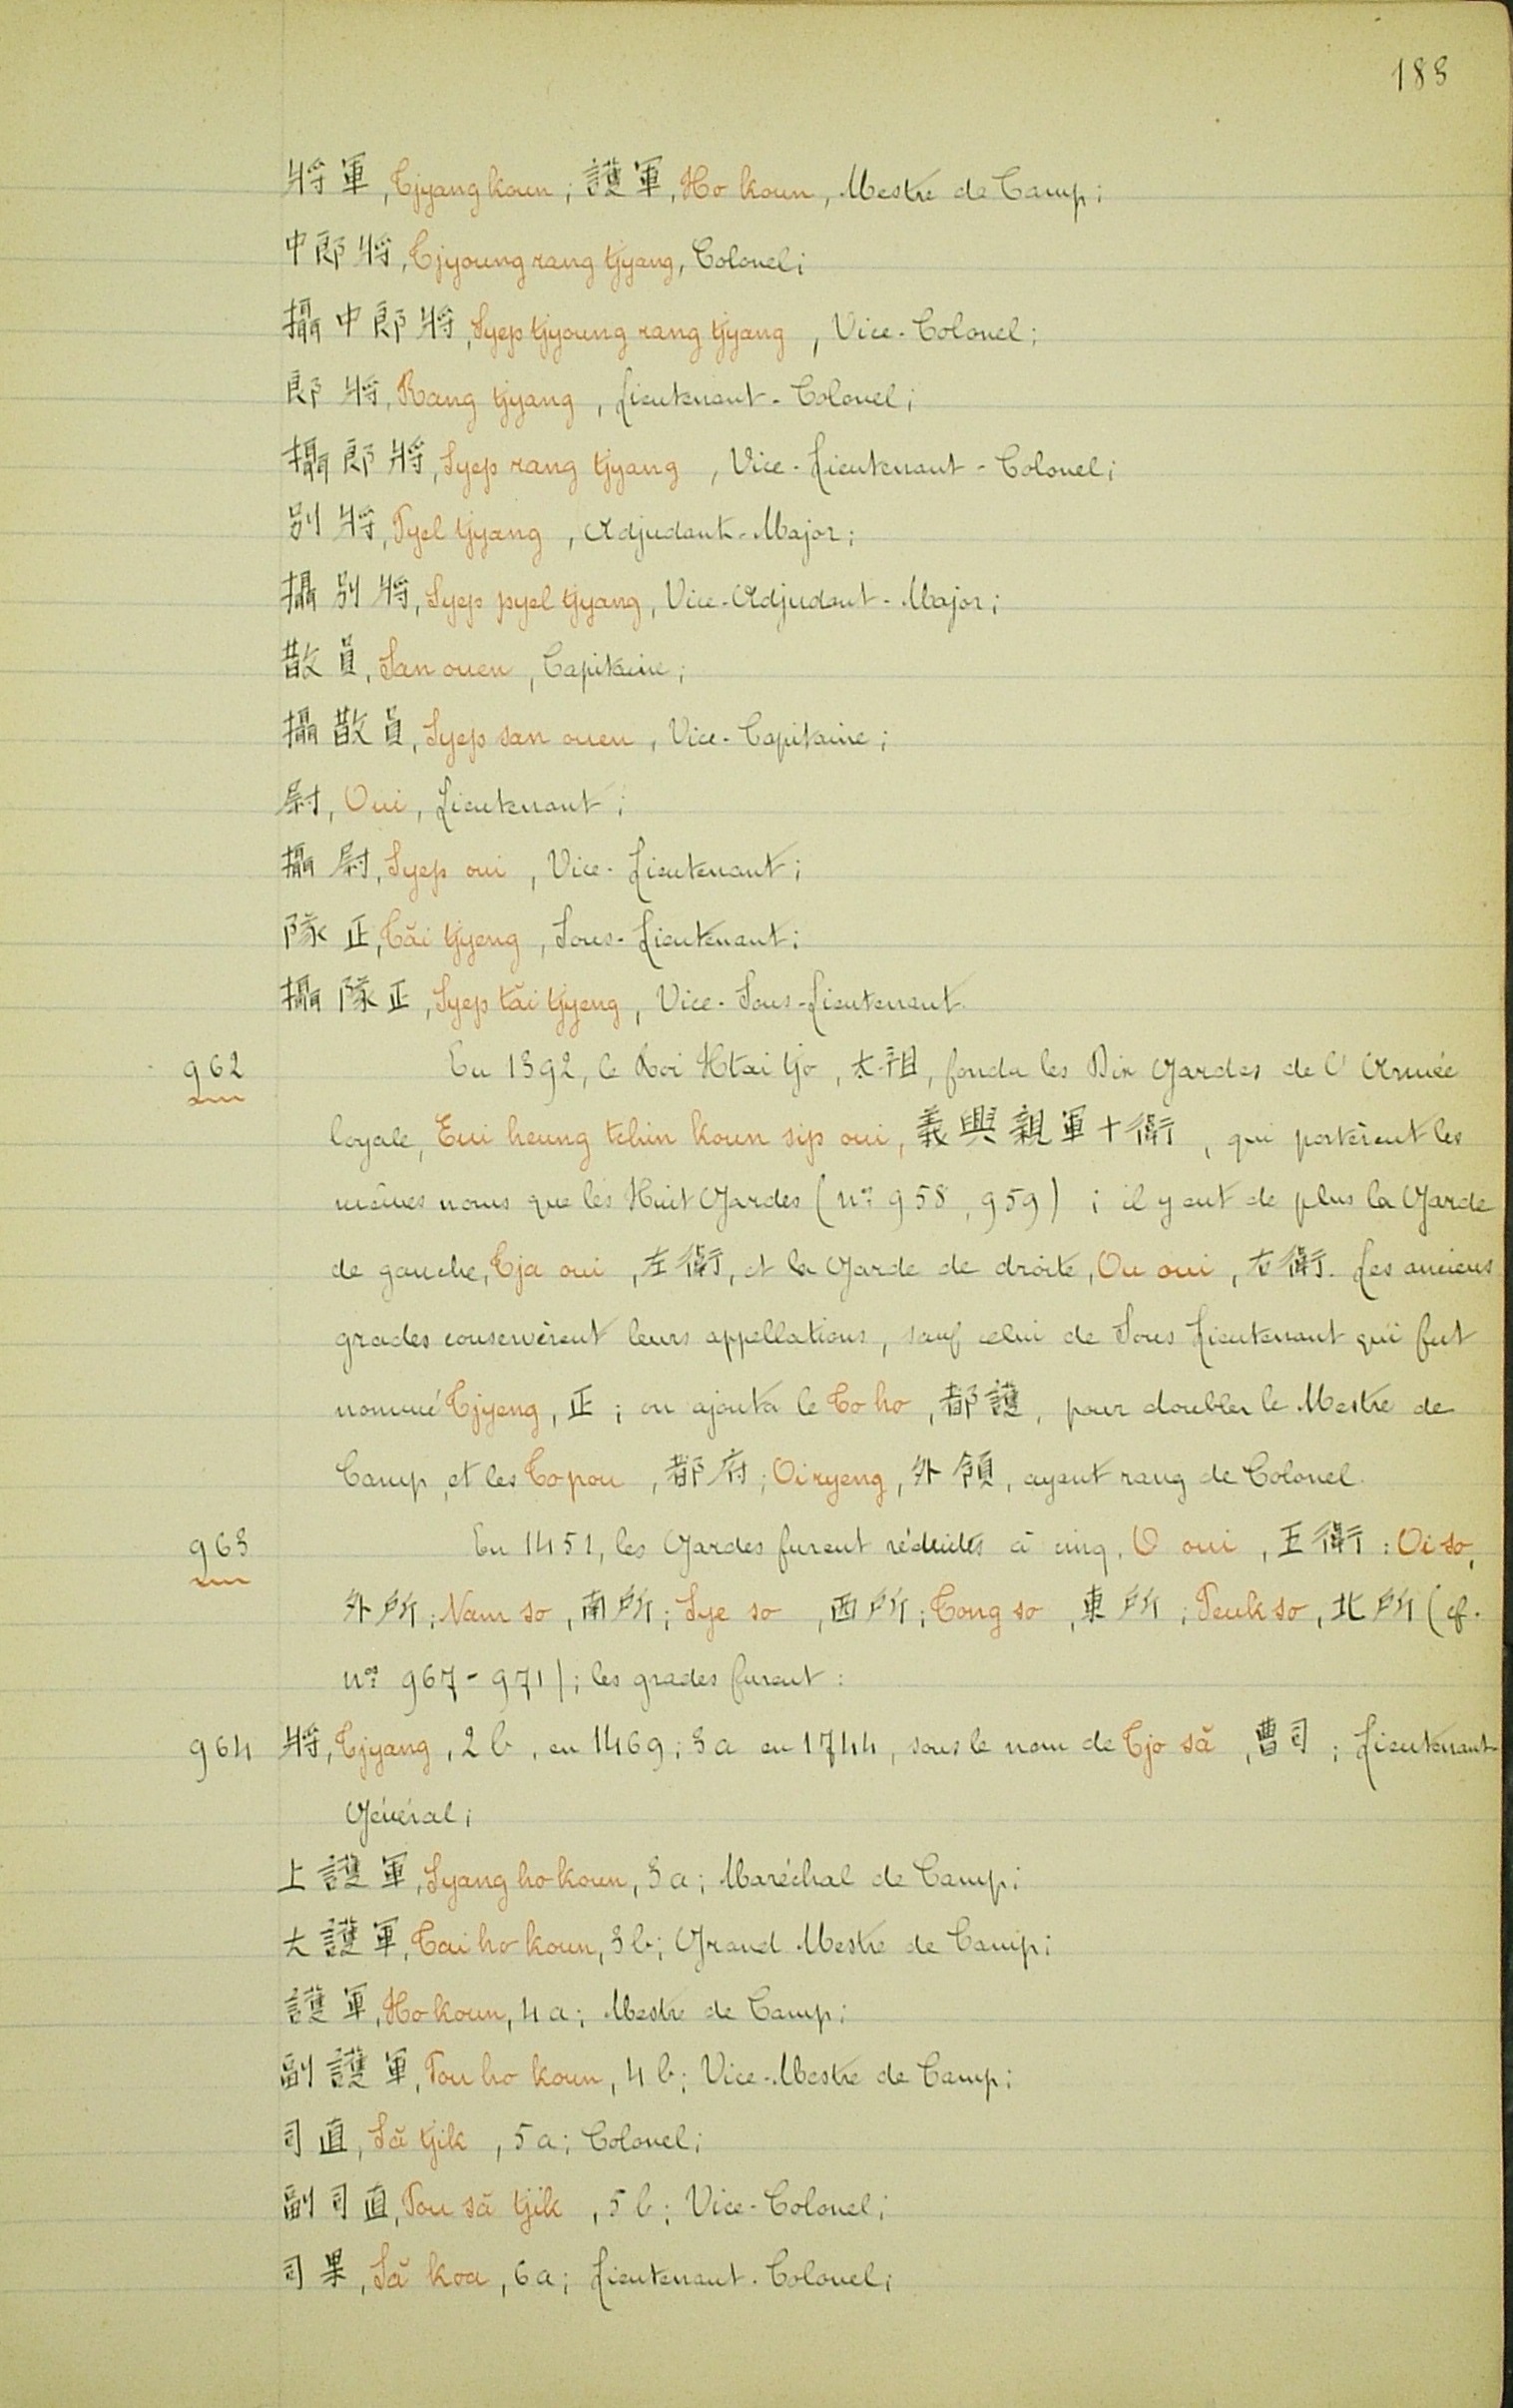 183
將軍, Tjyang koun; 護軍, Ho koun, Mestre de Camp;
中郎將, Tjyoung rang tjyang, Colonel;
攝中郎將, Syep tjyoung rang tjyang, Vice-Colonel;
郎將, Rang tjyang, Lieutenant-Colonel;
攝郎將, Syep rang tjyang, Vice-Lieutenant-Colonel;
別將, Pyel tjyang, Adjudant-Major;
攝別將, Syep pyel tjyang, Vice-Adjudant-Major;
散員, San ouen, Capitaine;
攝散員, Syep san ouen, Vice-Capitaine;
尉, Oui, Lieutenant;
攝尉, Syep oui, Vice-Lieutenant;
隊正, Tăi tjyeng, Sous-Lieutenant;
攝隊正, Syep tăi tjyeng, Vice-Sous-Lieutenant.
962 En 1392, le Roi Htai tjo, 太祖, fonda les Dix Gardes de l'Armée
loyale, Eui heung tchin koun sip oui, 義興親軍十衛, qui portèrent les
mêmes noms que les Huit Gardes (nos 958, 959); il y eut de plus la Garde
de gauche, Tja oui, 左衛, et la Garde de droite, Ou oui, 右衛. Les anciens
grades conservèrent leurs appellations, sauf celui de Sous Lieutenant qui fut
nommé Tjyeng, 正; on ajouta le To ho, 都護, pour doubler le Mestre de
Camp, et les To pou, 都府; Oi ryeng, 外領, ayant rang de Colonel.
963 En 1451, les Gardes furent réduites à cinq, O oui, 五衛: Oi so,
外所; Nam so, 南所; Sye so, 西所; Tong so, 東所; Peuk so, 北所 (cf.
nos 967-971); les grades furent:
964 將, Tjyang, 2b, en 1469; 3a en 1744, sous le nom de Tjo să, 曹司; Lieutenant-
Général;
上護軍, Syang ho koun, 3a; Maréchal de Camp;
大護軍, Tai ho koun, 3b; Grand Mestre de Camp;
護軍, Ho koun, 4a; Mestre de Camp;
副護軍, Pou ho koun, 4b; Vice-Mestre de Camp;
司直, Să tjik, 5a; Colonel;
副司直, Pou să tjik, 5b; Vice-Colonel;
司果, Să koa, 6a; Lieutenant-Colonel;